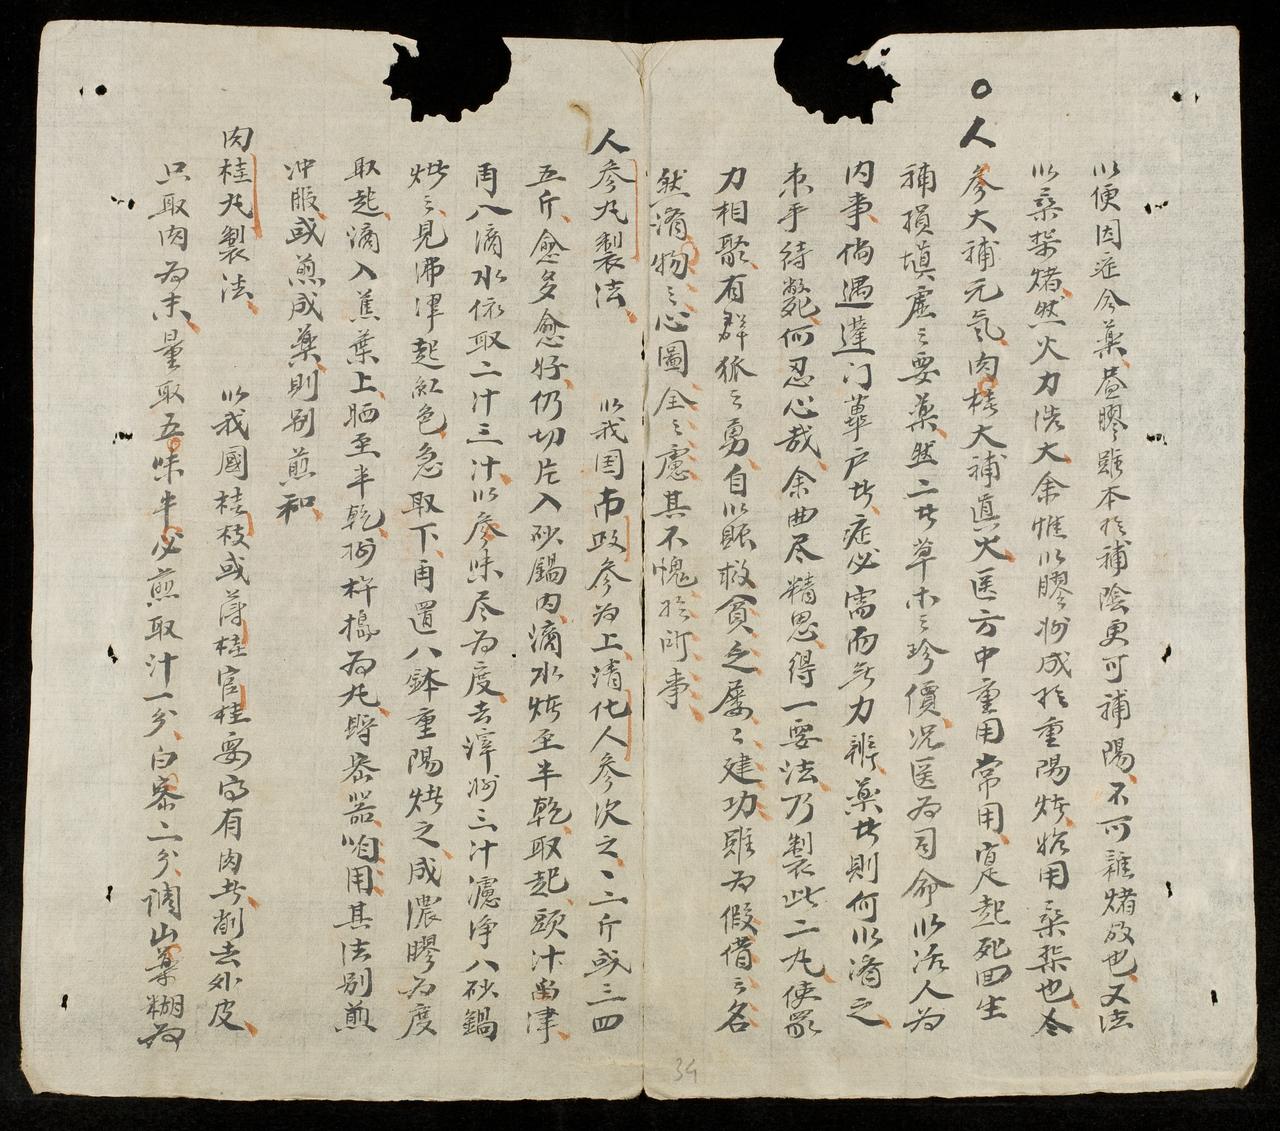 以便因症合藥蓋膠雖本於補陰更可補陽不可雜煮故也又法
以桑柴煮然火力浩大余惟以膠將成於重陽焙始用桑柴也令
○人參大補元氣肉桂大補真火医方中重用常用寔起死回生
補損填虛之要藥然二者草木之珍價況医為司命以活人為
內事倘遇蓬门蓽户者症必需而無力辨藥者則何以濟之
束手待斃何忍心哉余曲尽精思得一要法乃製此二丸使眾
力相聚有群狐之勇自以賑救貧乏屡〻建功雖為假借之名
然濟物之心圖全之慮其不愧於所事
人參丸製法 以我国布政參為上清化人參次之二斤或三四
五斤愈多愈好仍切片入砂鍋內滴水焙至半乾取起頭汁尚津
再入滴水依取二汁三汁以參味尽為度去滓將三汁濾净入砂鍋
焙之見沸津起紅色急取下再置入鉢重陽焙之成濃膠為度
取起滴入蕉葉上晒至半乾將杵搗為丸貯密器咱用其法别煎
冲服或煎成藥則别煎和
肉桂丸製法 以我國桂枝或薄桂官桂要高有肉者削去外皮
只取肉為末量取五味半必煎取汁一分白蜜二分調山藥糊為
34